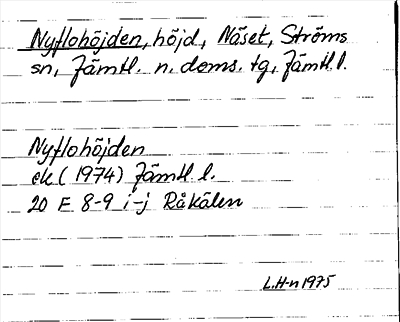 Nyflohöjden, höjd, Näset, Ströms
sn, Jämtl. n. doms. tg, Jämtl l.
Nyflohöjden
ek (1974) Jämtl l.
20 F 8-9 i-j Råkälen
L.H-n 1975